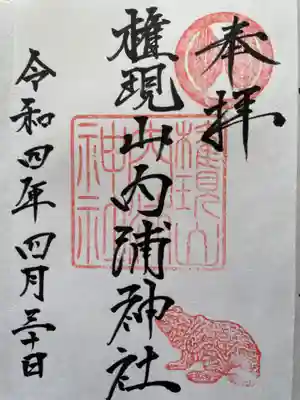 奉拝
権現山内浦神社
令和四年四月三十日
権現山内浦神社